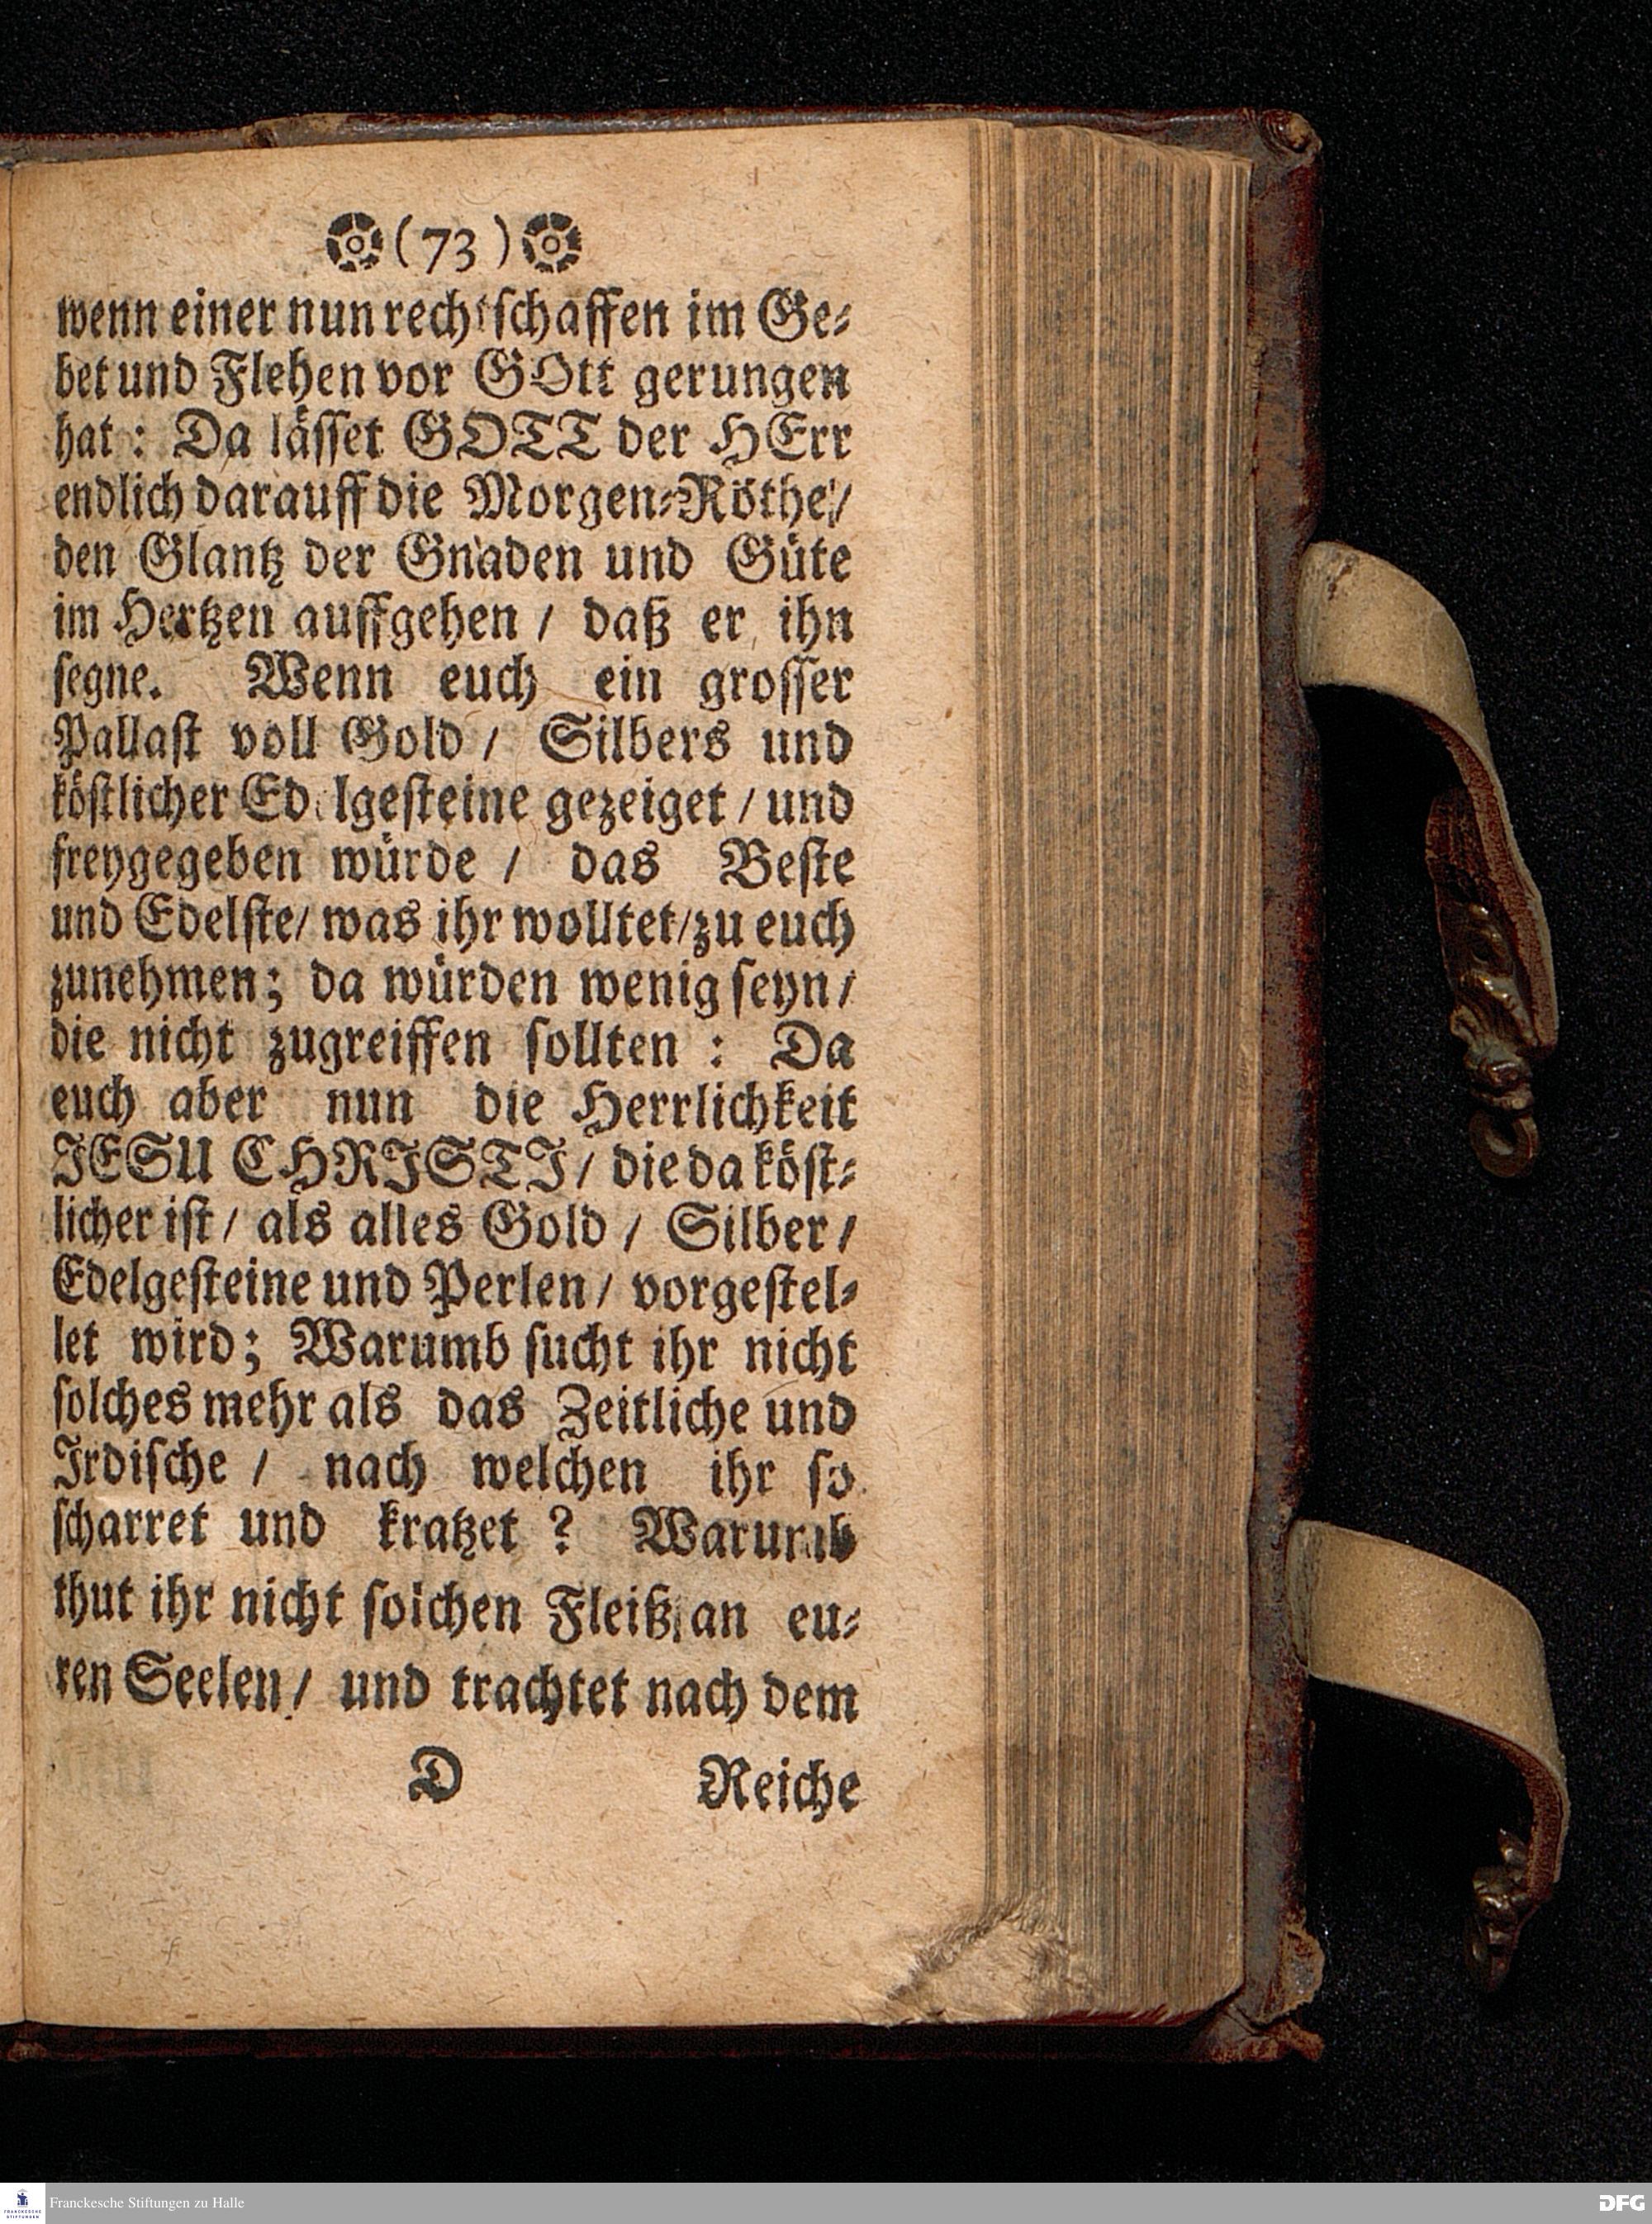 (73)
wenn einer nun rechtschaffen im Ge-
bet und Flehen vor GOtt gerungen
hat : Da lässet GOTT der HErr
endlich darauff die Morgen-Röthe/
den Glantz der Gnaden und Güte
im Hertzen auffgehen / daß er ihn
segne. Wenn euch ein grosser
Pallast voll Gold / Silbers und
köstlicher Edelgesteine gezeiget / und
freygegeben würde / das Beste
und Edelste/ was ihr wolltet/zu euch
zunehmen; da würden wenig seyn/
die nicht zugreiffen sollten : Da
euch aber nun die Herrlichkeit
JESU CHRISTI/ die da köst-
licher ist/ als alles Gold / Silber/
Edelgesteine und Perlen/ vorgestel-
let wird; Warumb sucht ihr nicht
solches mehr als das Zeitliche und
Irdische / nach welchen ihr so
scharret und kratzet ? Warumb
thut ihr nicht solchen Fleiß an eu-
ren Seelen/ und trachtet nach dem
D Reiche
FRANCKESCHE STIFTUNGEN
Franckesche Stiftungen zu Halle
DFG